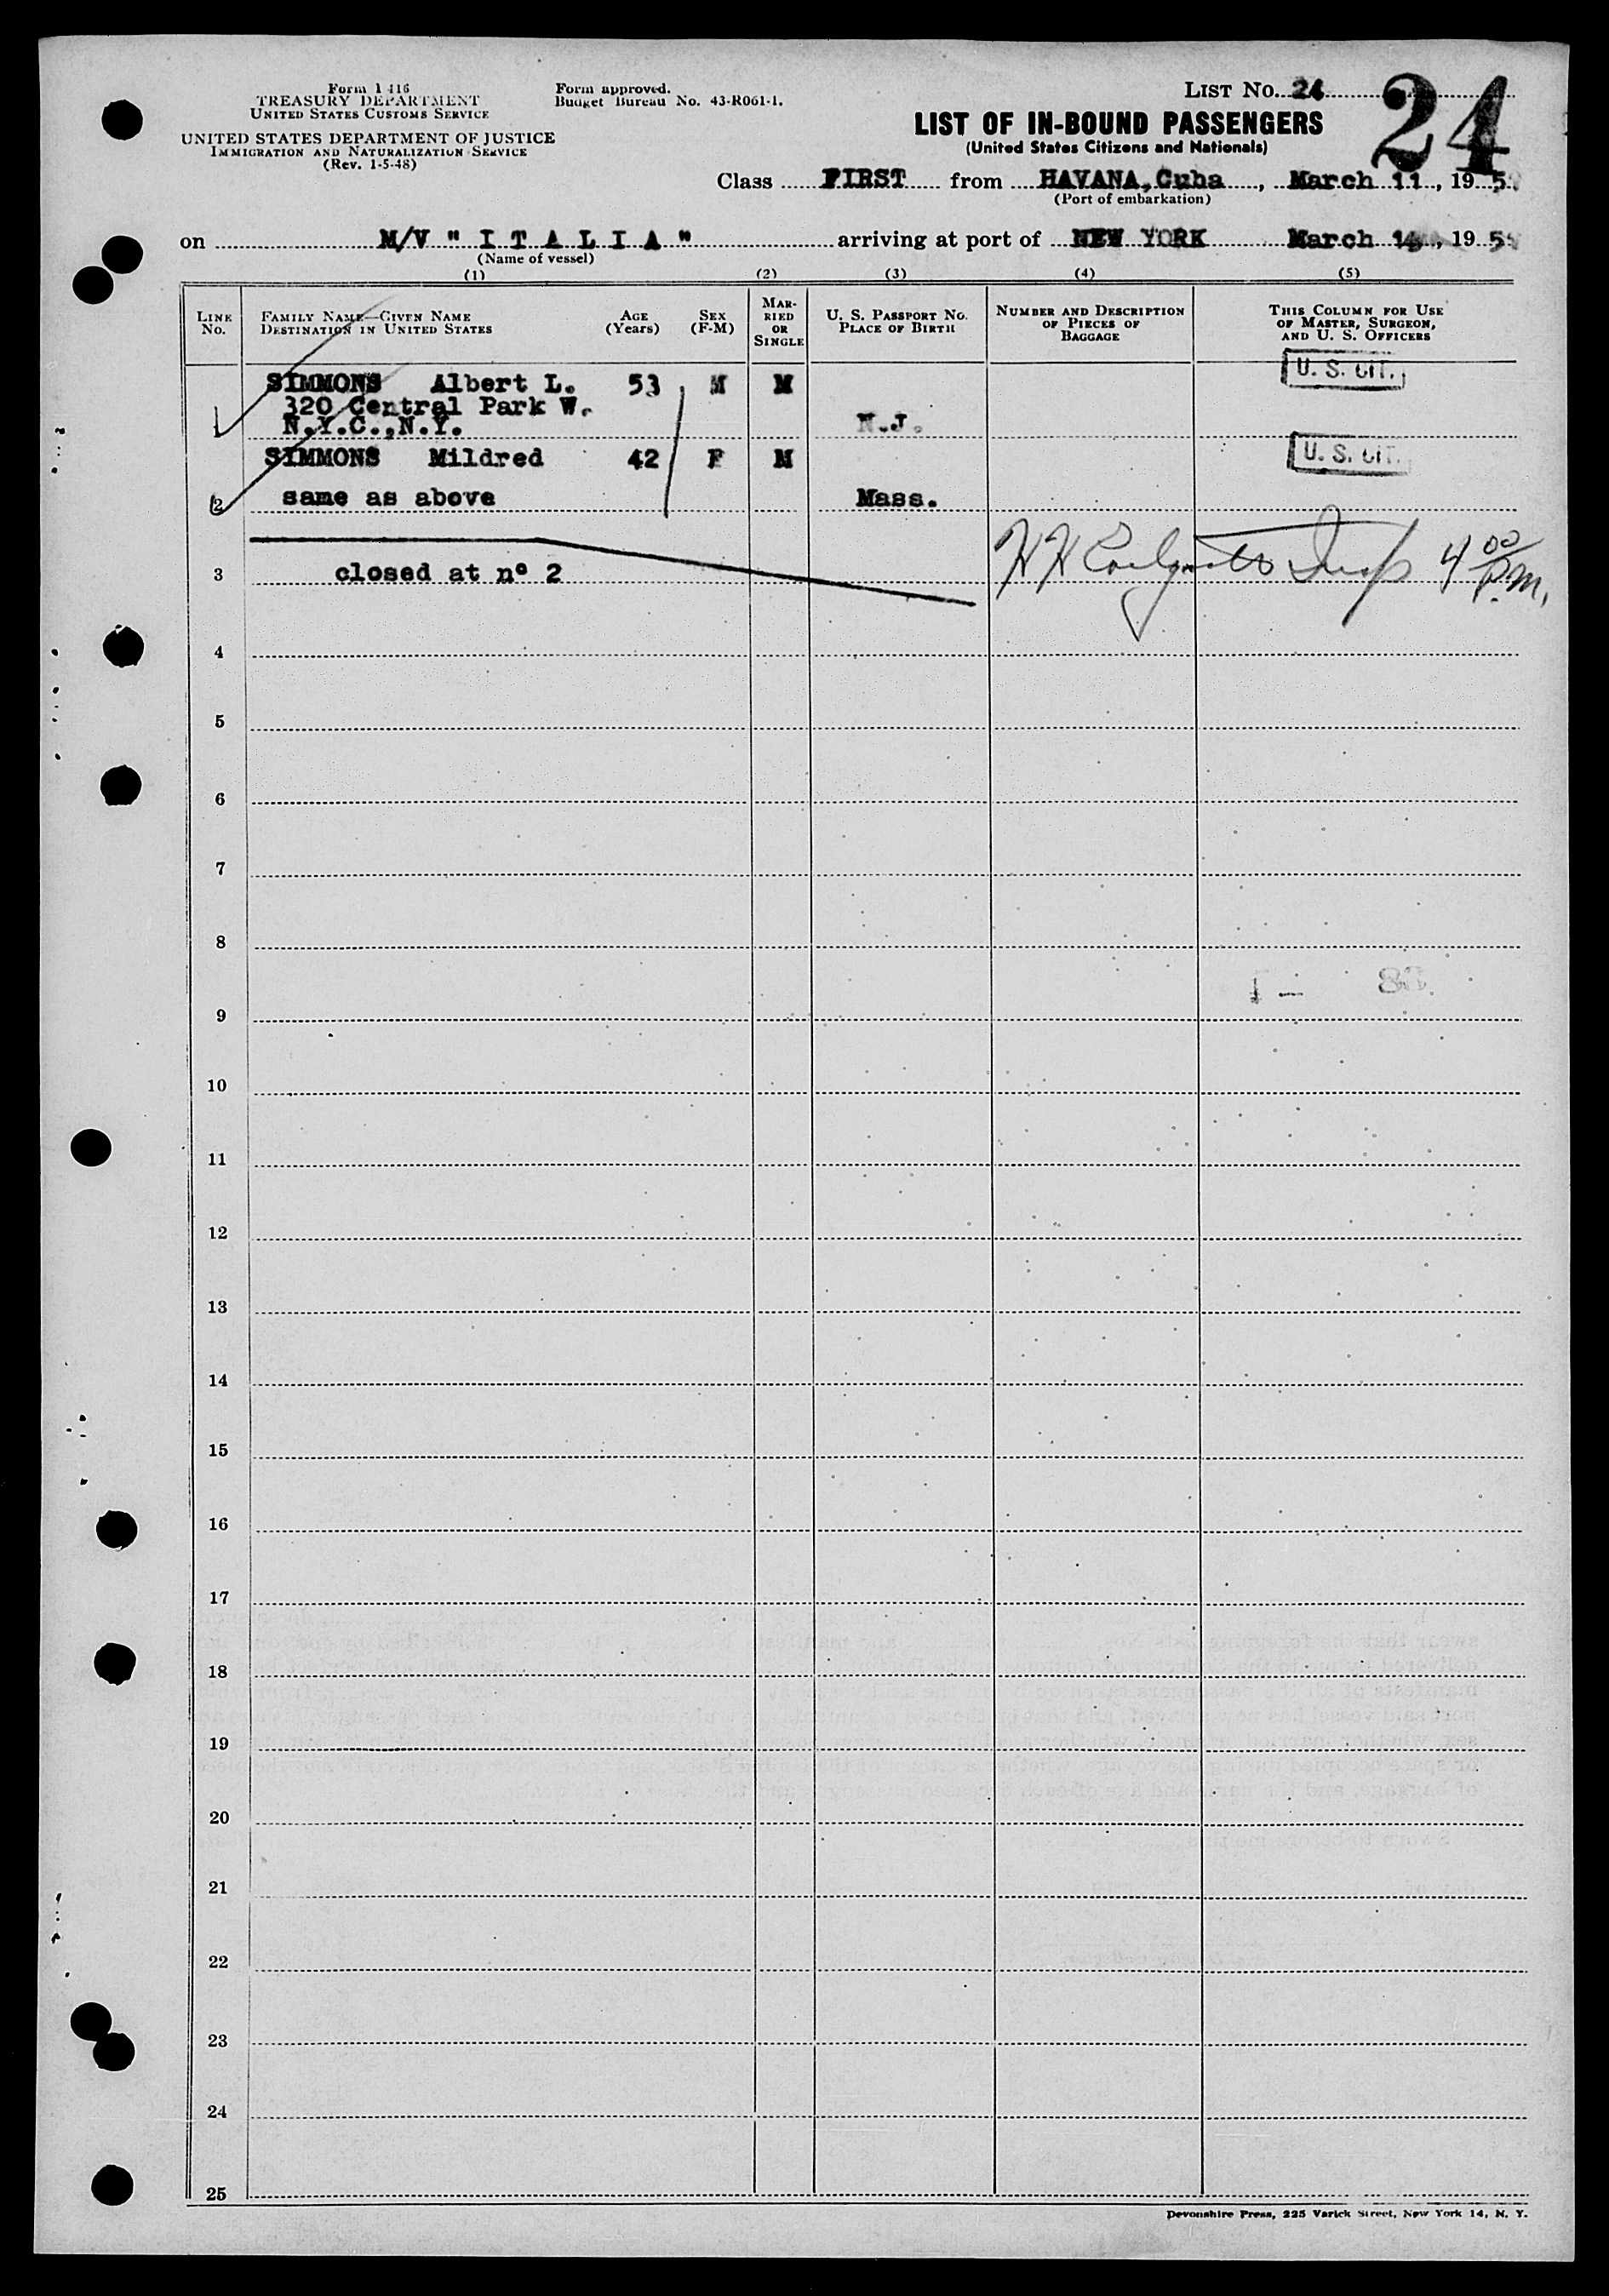 Form I 416
TREASURY DEPARTMENT
UNITED STATES CUSTOMS SERVICE
UNITED STATES DEPARTMENT OF JUSTICE
IMMIGRATION AND NATURALIZATION SERVICE
(Rev. 1-5-48)
Form approved.
Budget Bureau No. 43-R061-1.
LIST No. 24
24
LIST OF IN-BOUND PASSENGERS
(United States Citizens and Nationals)
Class FIRST from HAVANA, Cuba, March 11, 195
(Port of embarkation)
on M/V " I T A L I A " arriving at port of NEW YORK March 14, 195
(Name of vessel)
(1) (2) (3) (4) (5)
LINE No. FAMILY NAME—GIVEN NAME DESTINATION IN UNITED STATES AGE (Years) SEX (F-M) MARRIED OR SINGLE U. S. PASSPORT NO. PLACE OF BIRTH NUMBER AND DESCRIPTION OF PIECES OF BAGGAGE THIS COLUMN FOR USE OF MASTER, SURGEON, AND U. S. OFFICERS
SIMMONS Albert L. 53 M M U. S. CIT.
320 Central Park W.
1 N.Y.C.,N.Y. N.J.
SIMMONS Mildred 42 F M U. S. CIT.
2 same as above Mass.
3 closed at nº 2 Insp 4 00 P.M.
4
5
6
7
8
9
10
11
12
13
14
15
16
17
18
19
20
21
22
23
24
25
Devonshire Press, 225 Varick Street, New York 14, N. Y.